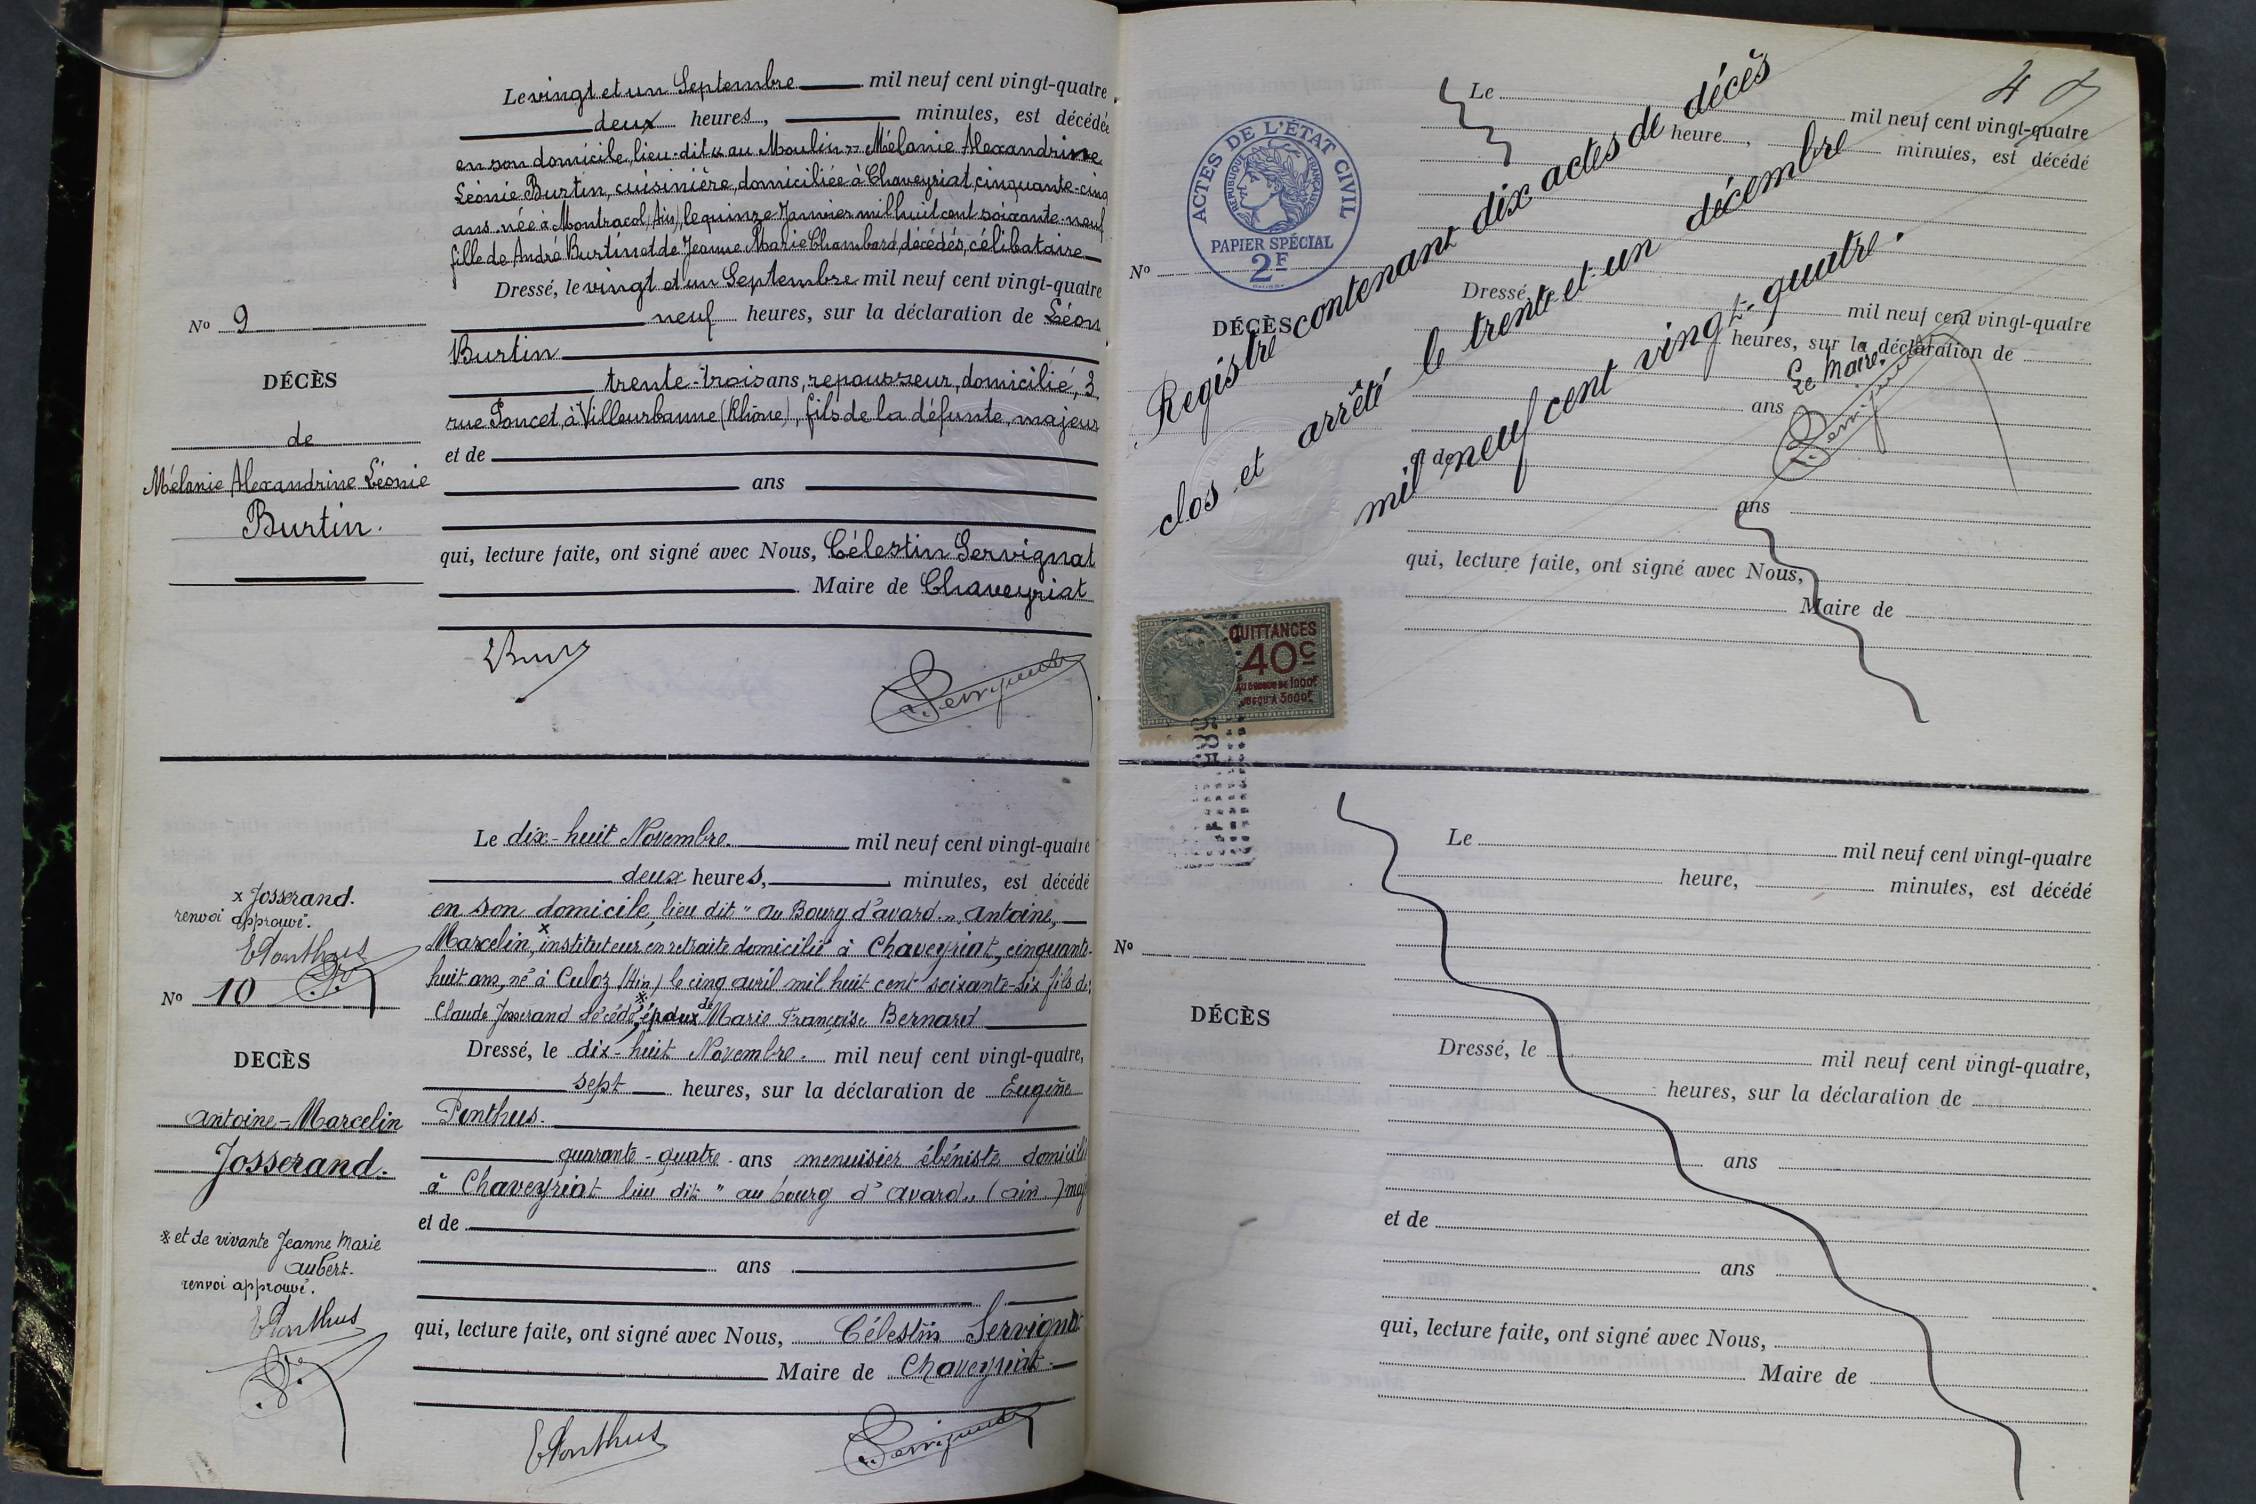 Le vingt et un Septembre mil neuf cent vingt-quatre
deux heures, minutes, est décédée
en son domicile, lieu-dit « au Moulin » Mélanie Alexandrine
Léonie Burtin, cuisinière, domiciliée à Chaveyriat, cinquante-cinq
ans née à Montracol (Ain), le quinze Janvier mil huit cent soixante-neuf
fille de André Burtin et de Jeanne Marie Chambard, décédés, célibataire
Dressé, le vingt et un Septembre mil neuf cent vingt-quatre
neuf heures, sur la déclaration de Léon
Burtin
trente-trois ans, repousseur, domicilié, 3
rue Poncet, à Villeurbanne (Rhône), fils de la défunte, majeur
et de
ans
qui, lecture faite, ont signé avec Nous, Célestin Servignat
Maire de Chaveyriat
No 9
DÉCÈS
de
Mélanie Alexandrine Léonie
Burtin.
Le dix-huit Novembre mil neuf cent vingt-quatre
deux heures, minutes, est décédé
en son domicile, lieu dit " au Bourg d'avard ", Antoine,
Marcelin, x instituteur en retraite domicilié à Chaveyriat, cinquante-
huit ans, né à Culoz (Ain) le cinq avril mil huit cent soixante-six fils de
Claude Josserand décédé, * époux de Marie Françoise Bernard
Dressé, le dix-huit Novembre mil neuf cent vingt-quatre,
sept heures, sur la déclaration de Eugène
Ponthus.
quarante-quatre ans menuisier ébéniste domicilié
à Chaveyriat lieu dit " au bourg d'avard " (ain)
et de
ans
qui, lecture faite, ont signé avec Nous, Célestin Servignat
Maire de Chaveyriat
EPonthus
Servignat
x Josserand.
renvoi approuvé.
EPonthus
No 10
DECÈS
Antoine-Marcelin
Josserand.
* et de vivante Jeanne Marie
Aubert.
renvoi approuvé.
EPonthus
4
Le mil neuf cent vingt-quatre
heure, minutes, est décédé
No
DÉCÈS
Dressé, le mil neuf cent vingt-quatre
heures, sur la déclaration de
ans
et de
ans
qui, lecture faite, ont signé avec Nous,
Maire de
ACTES DE L'ÉTAT CIVIL
RÉPUBLIQUE FRANÇAISE
PAPIER SPÉCIAL
2F
Registre contenant dix actes de décès
clos et arrêté le trente et un décembre
mil neuf cent vingt-quatre.
Le Maire.
Servignat
QUITTANCES
40c
AU DESSUS DE 1000F
JUSQU'À 3000F
Le mil neuf cent vingt-quatre
heure, minutes, est décédé
No
DÉCÈS
Dressé, le mil neuf cent vingt-quatre,
heures, sur la déclaration de
ans
et de
ans
qui, lecture faite, ont signé avec Nous,
Maire de